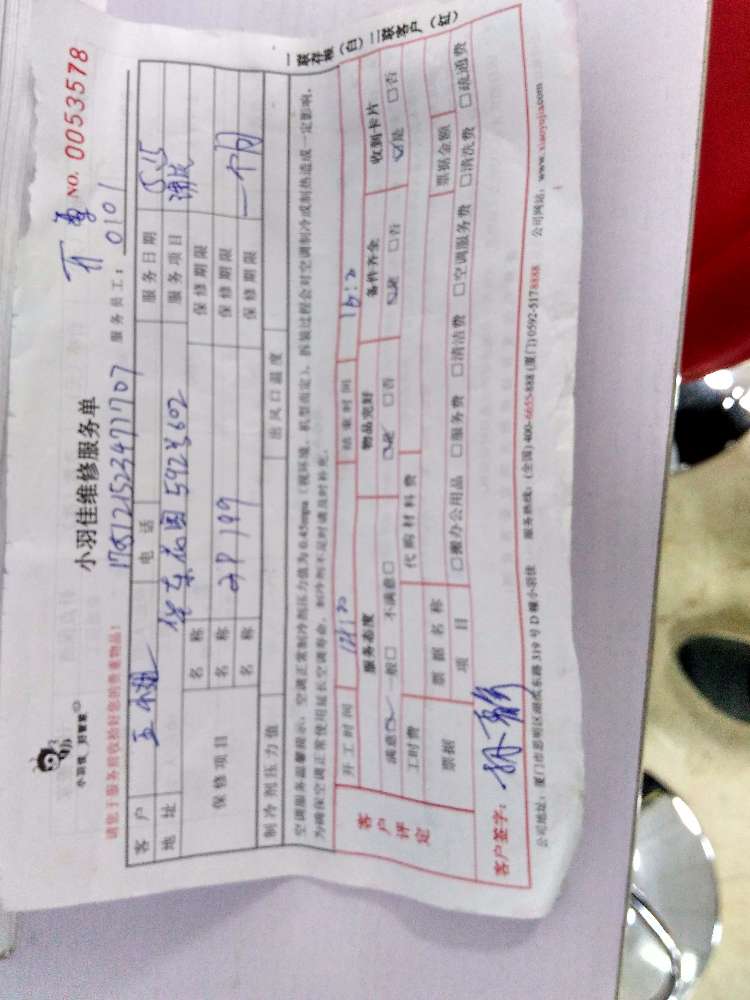 小羽佳 好管家
小羽佳维修服务单
NO. 0053578
请您于服务前收拾好您的贵重物品!
服务员工: 0101
客户 王小姐 电话 服务日期 5.15
地址 华东花园 服务项目
保修项目 名称 保修期限
名称 保修期限
名称 2P 199 保修期限 一个月
制冷剂压力值 出风口温度
空调服务温馨提示:空调正常制冷剂压力值为0.45mpa(视环境、机型而定),拆装过程会对空调制冷或制热造成一定影响,
为确保空调正常使用延长空调寿命,制冷剂不足时请及时补充。
客户评定
开工时间 结束时间 16:20
服务态度 物品完好 备件齐全 收到卡片
满意☑ 一般□ 不满意□ ☑是 □否 ☑是 □否 ☑是 □否
工时费 代购材料费
票据 票据名称 票据金额
项目 □搬办公用品 □服务费 □清洁费 □空调服务费 □清洗费 □疏通费
客户签字:
公司地址:厦门市思明区湖滨东路319号D幢小羽佳 服务热线:(全国)400-6655-888 (厦门)0592-5178888 公司网站:www.xiaoyujia.com
一联存根(白)二联客户(红)